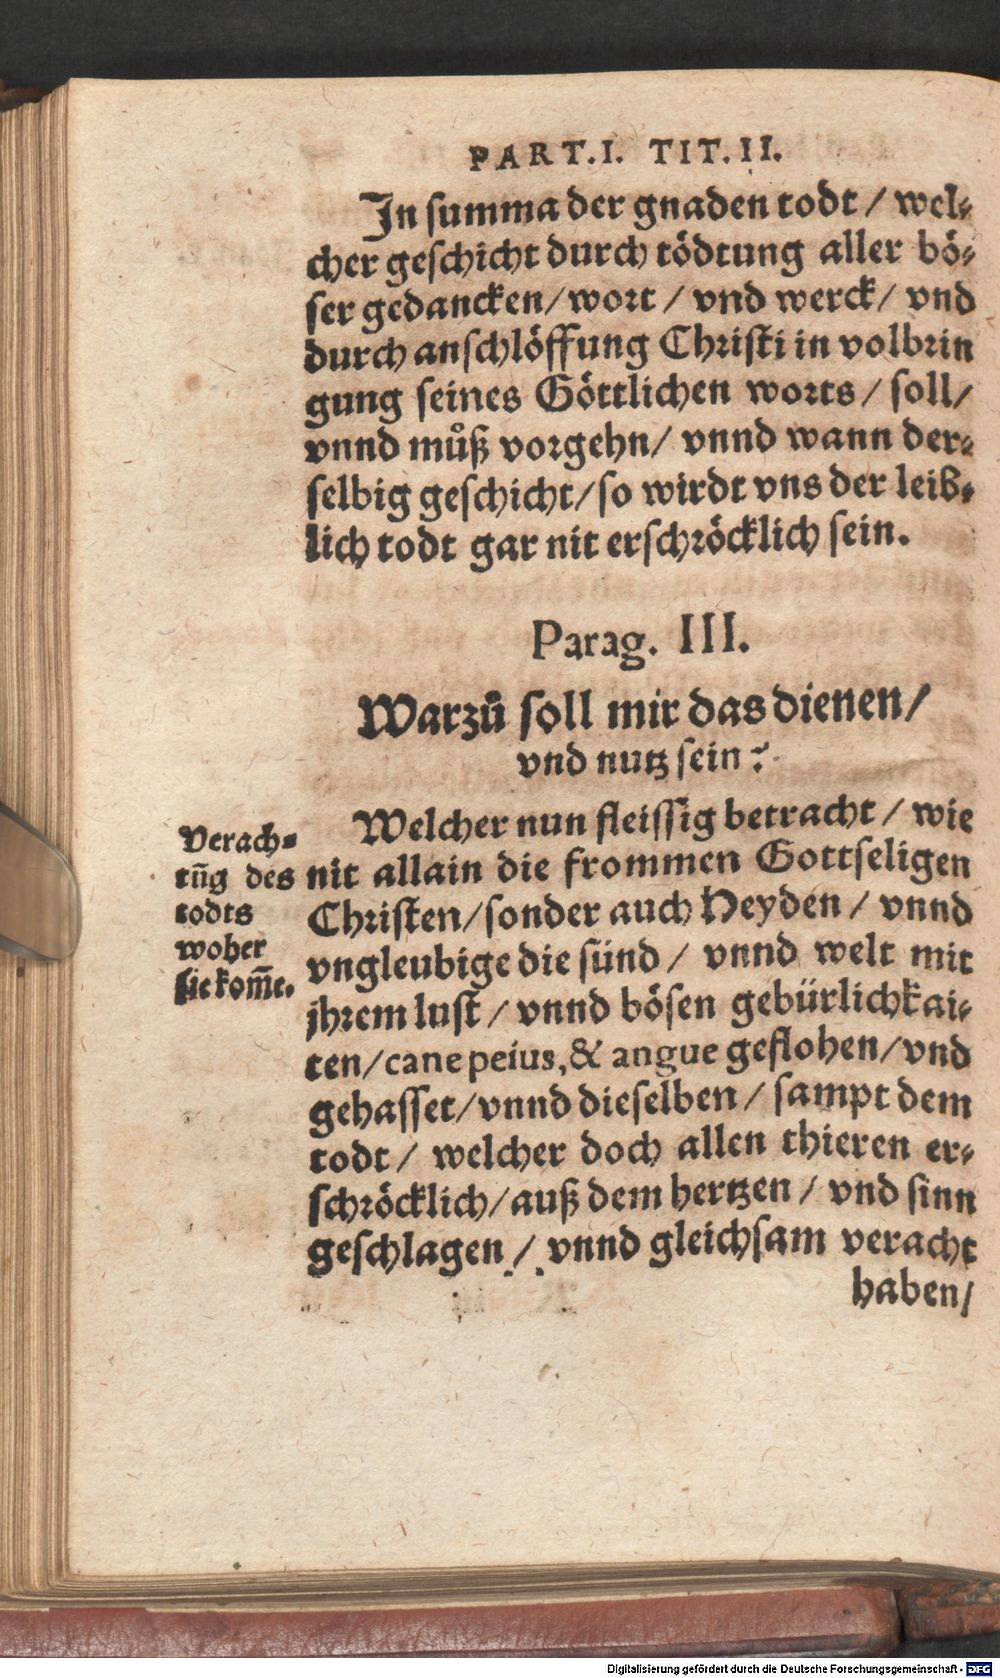 PART.I. TIT.II.
In summa der gnaden todt / wel⸗
cher geschicht durch tödtung aller bö⸗
ser gedancken/ wort / vnd werck/ vnd
durch anschlöffung Christi in volbrin
gung seines Göttlichen worts / soll/
vnnd můß vorgehn/ vnnd wann der⸗
selbig geschicht/ so wirdt vns der leib⸗
lich todt gar nit erschröcklich sein.
Parag. III.
Warzů soll mir das dienen/
vnd nutz sein?
Verach⸗
tūg des
todts
woher
sie kom̄e.
Welcher nun fleissig betracht / wie
nit allain die frommen Gottseligen
Christen/ sonder auch Heyden / vnnd
vngleubige die sünd / vnnd welt mit
jhrem lust / vnnd bösen gebürlichkai⸗
ten/ cane peius, & angue geflohen/ vnd
gehasset/ vnnd dieselben / sampt dem
todt / welcher doch allen thieren er⸗
schröcklich/ auß dem hertzen / vnd sinn
geschlagen / vnnd gleichsam veracht
haben/
Digitalisierung gefördert durch die Deutsche Forschungsgemeinschaft - DFG